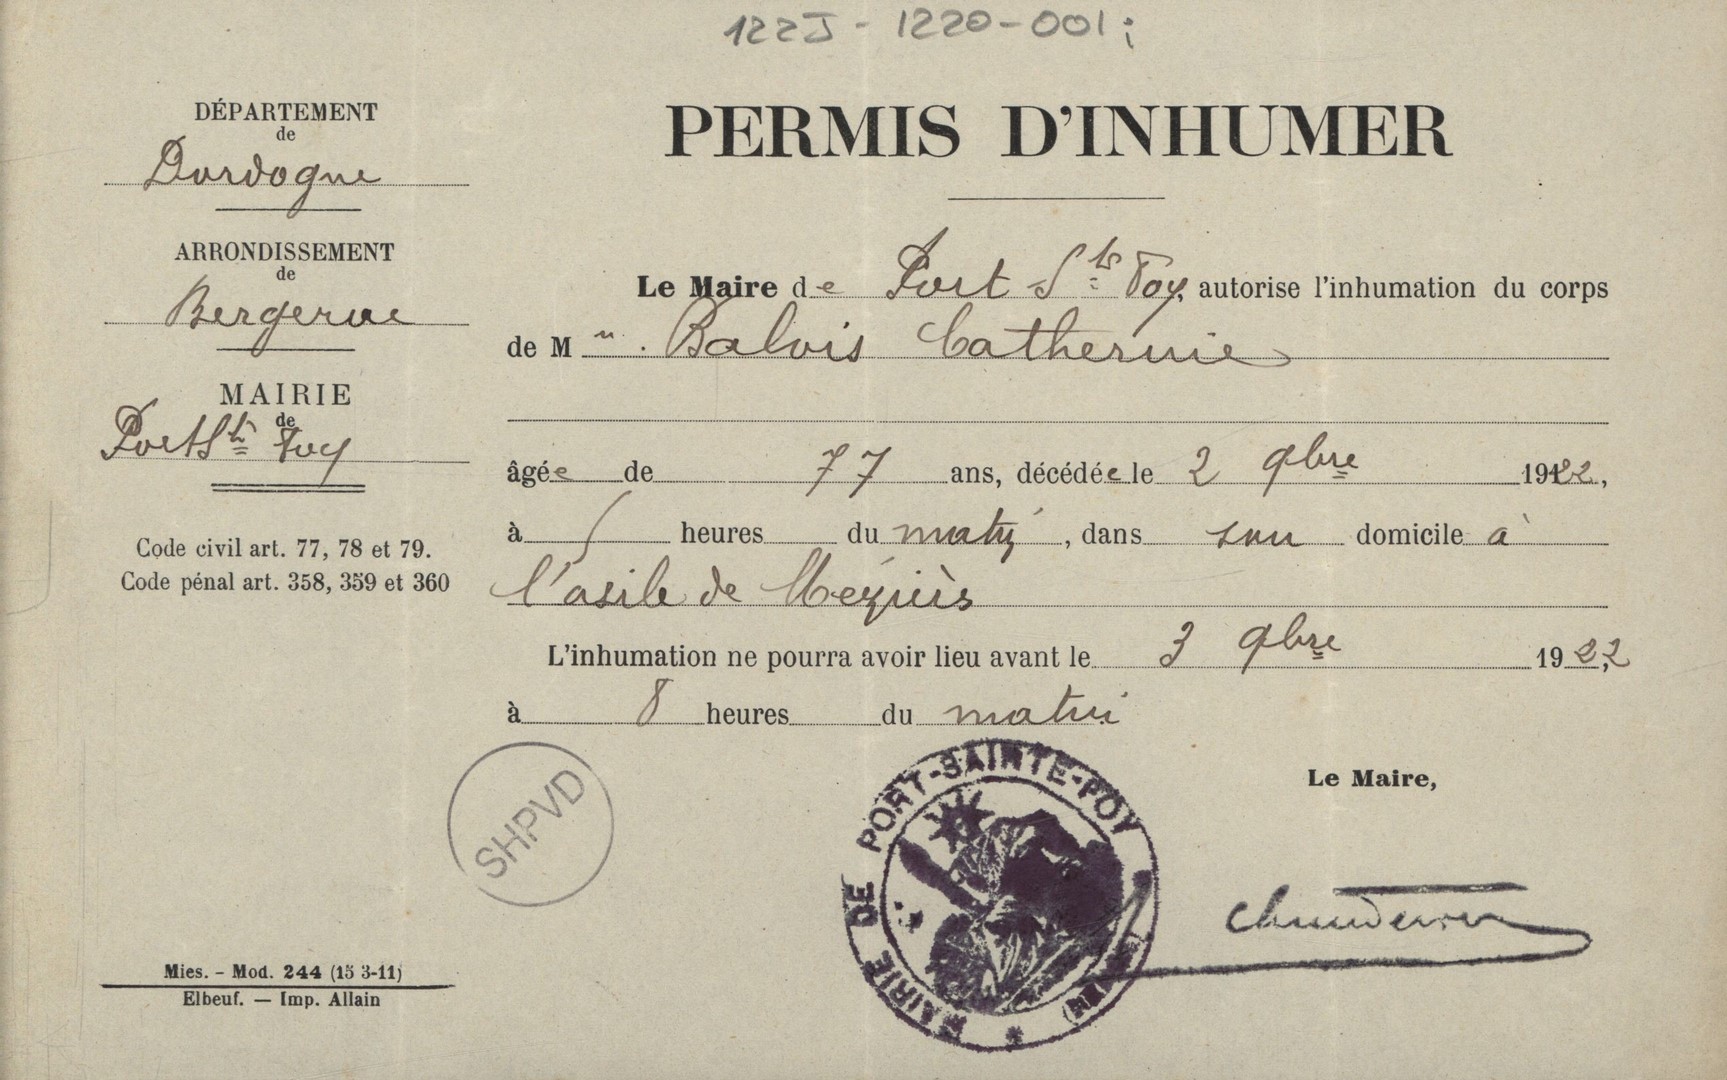 122J - 1220-001;
DÉPARTEMENT
de
Dordogne
ARRONDISSEMENT
de
Bergerac
MAIRIE
de
Port Ste Foy
Code civil art. 77, 78 et 79.
Code pénal art. 358, 359 et 360
Mies. - Mod. 244 (15 3-11)
Elbeuf. — Imp. Allain
PERMIS D'INHUMER
Le Maire de Port Ste Foy, autorise l'inhumation du corps
de M Balois Catherine
âgée de 77 ans, décédée le 2 9bre 1922,
à 5 heures du matin, dans son domicile à
l'asile de
L'inhumation ne pourra avoir lieu avant le 3 9bre 1922,
à 8 heures du matin
Le Maire,
SHPVD
MAIRIE DE PORT-SAINTE-FOY